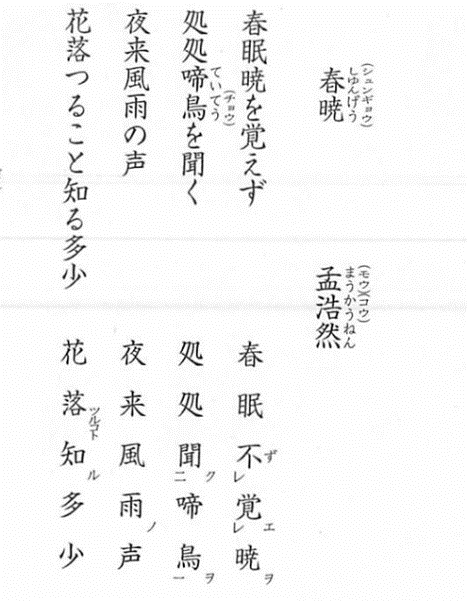 (シュンギョウ)
しゆんげう
春暁
(モウ)(コウ)
まうかうねん
孟浩然
春眠暁を覚えず
処処啼鳥を聞く
(チョウ)
ていてう
夜来風雨の声
花落つること知る多少
春眠不ㇾ覚ㇾ暁
ず エ ヲ
処処聞二啼鳥一
ク ヲ
夜来風雨声
ノ
花落知多少
ツルコト ル